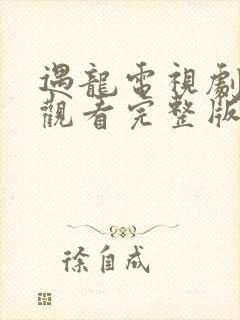 遇龍電視劇
觀看完整版
徐自成